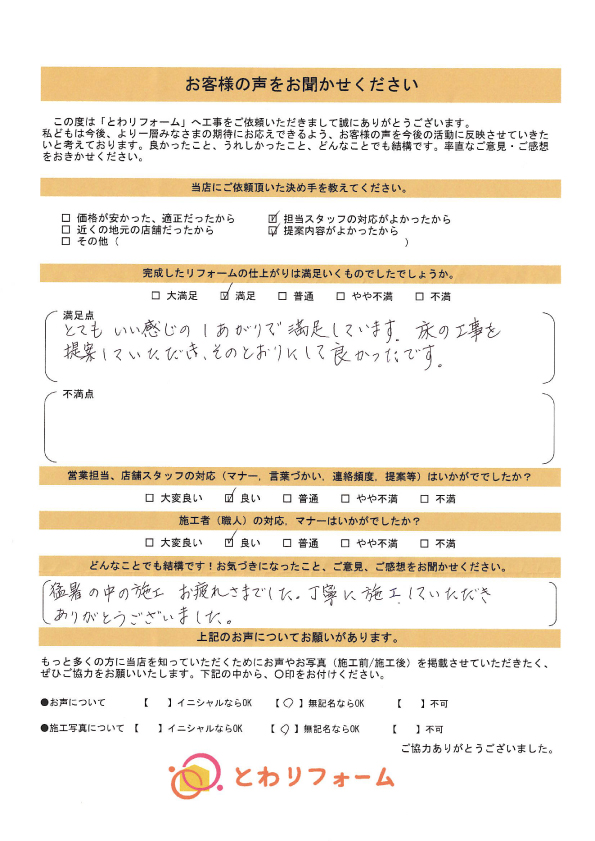 お客様の声をお聞かせください
この度は「とわリフォーム」へ工事をご依頼いただきまして誠にありがとうございます。
私どもは今後、より一層みなさまの期待にお応えできるよう、お客様の声を今後の活動に反映させていきた
いと考えております。良かったこと、うれしかったこと、どんなことでも結構です。率直なご意見・ご感想
をおきかせください。
当店にご依頼頂いた決め手を教えてください。
☐ 価格が安かった、適正だったから ☑ 担当スタッフの対応がよかったから
☐ 近くの地元の店舗だったから ☑ 提案内容がよかったから
☐ その他（ ）
完成したリフォームの仕上がりは満足いくものでしたでしょうか。
☐ 大満足 ☑ 満足 ☐ 普通 ☐ やや不満 ☐ 不満
満足点
とても いい感じの しあがりで 満足しています。床の工事を
提案していただき、そのとおりにして良かったです。
不満点
営業担当、店舗スタッフの対応（マナー，言葉づかい，連絡頻度，提案等）はいかがででしたか？
☐ 大変良い ☑ 良い ☐ 普通 ☐ やや不満 ☐ 不満
施工者（職人）の対応，マナーはいかがでしたか？
☐ 大変良い ☑ 良い ☐ 普通 ☐ やや不満 ☐ 不満
どんなことでも結構です！お気づきになったこと、ご意見、ご感想をお聞かせください。
猛暑の中の施工 お疲れさまでした。丁寧に施工していただき
ありがとうございました。
上記のお声についてお願いがあります。
もっと多くの方に当店を知っていただくためにお声やお写真（施工前/施工後）を掲載させていただきたく、
ぜひご協力をお願いいたします。下記の中から、〇印をお付けください。
●お声について 【 】イニシャルならOK 【 〇 】無記名ならOK 【 】不可
●施工写真について 【 】イニシャルならOK 【 〇 】無記名ならOK 【 】不可
ご協力ありがとうございました。
とわリフォーム